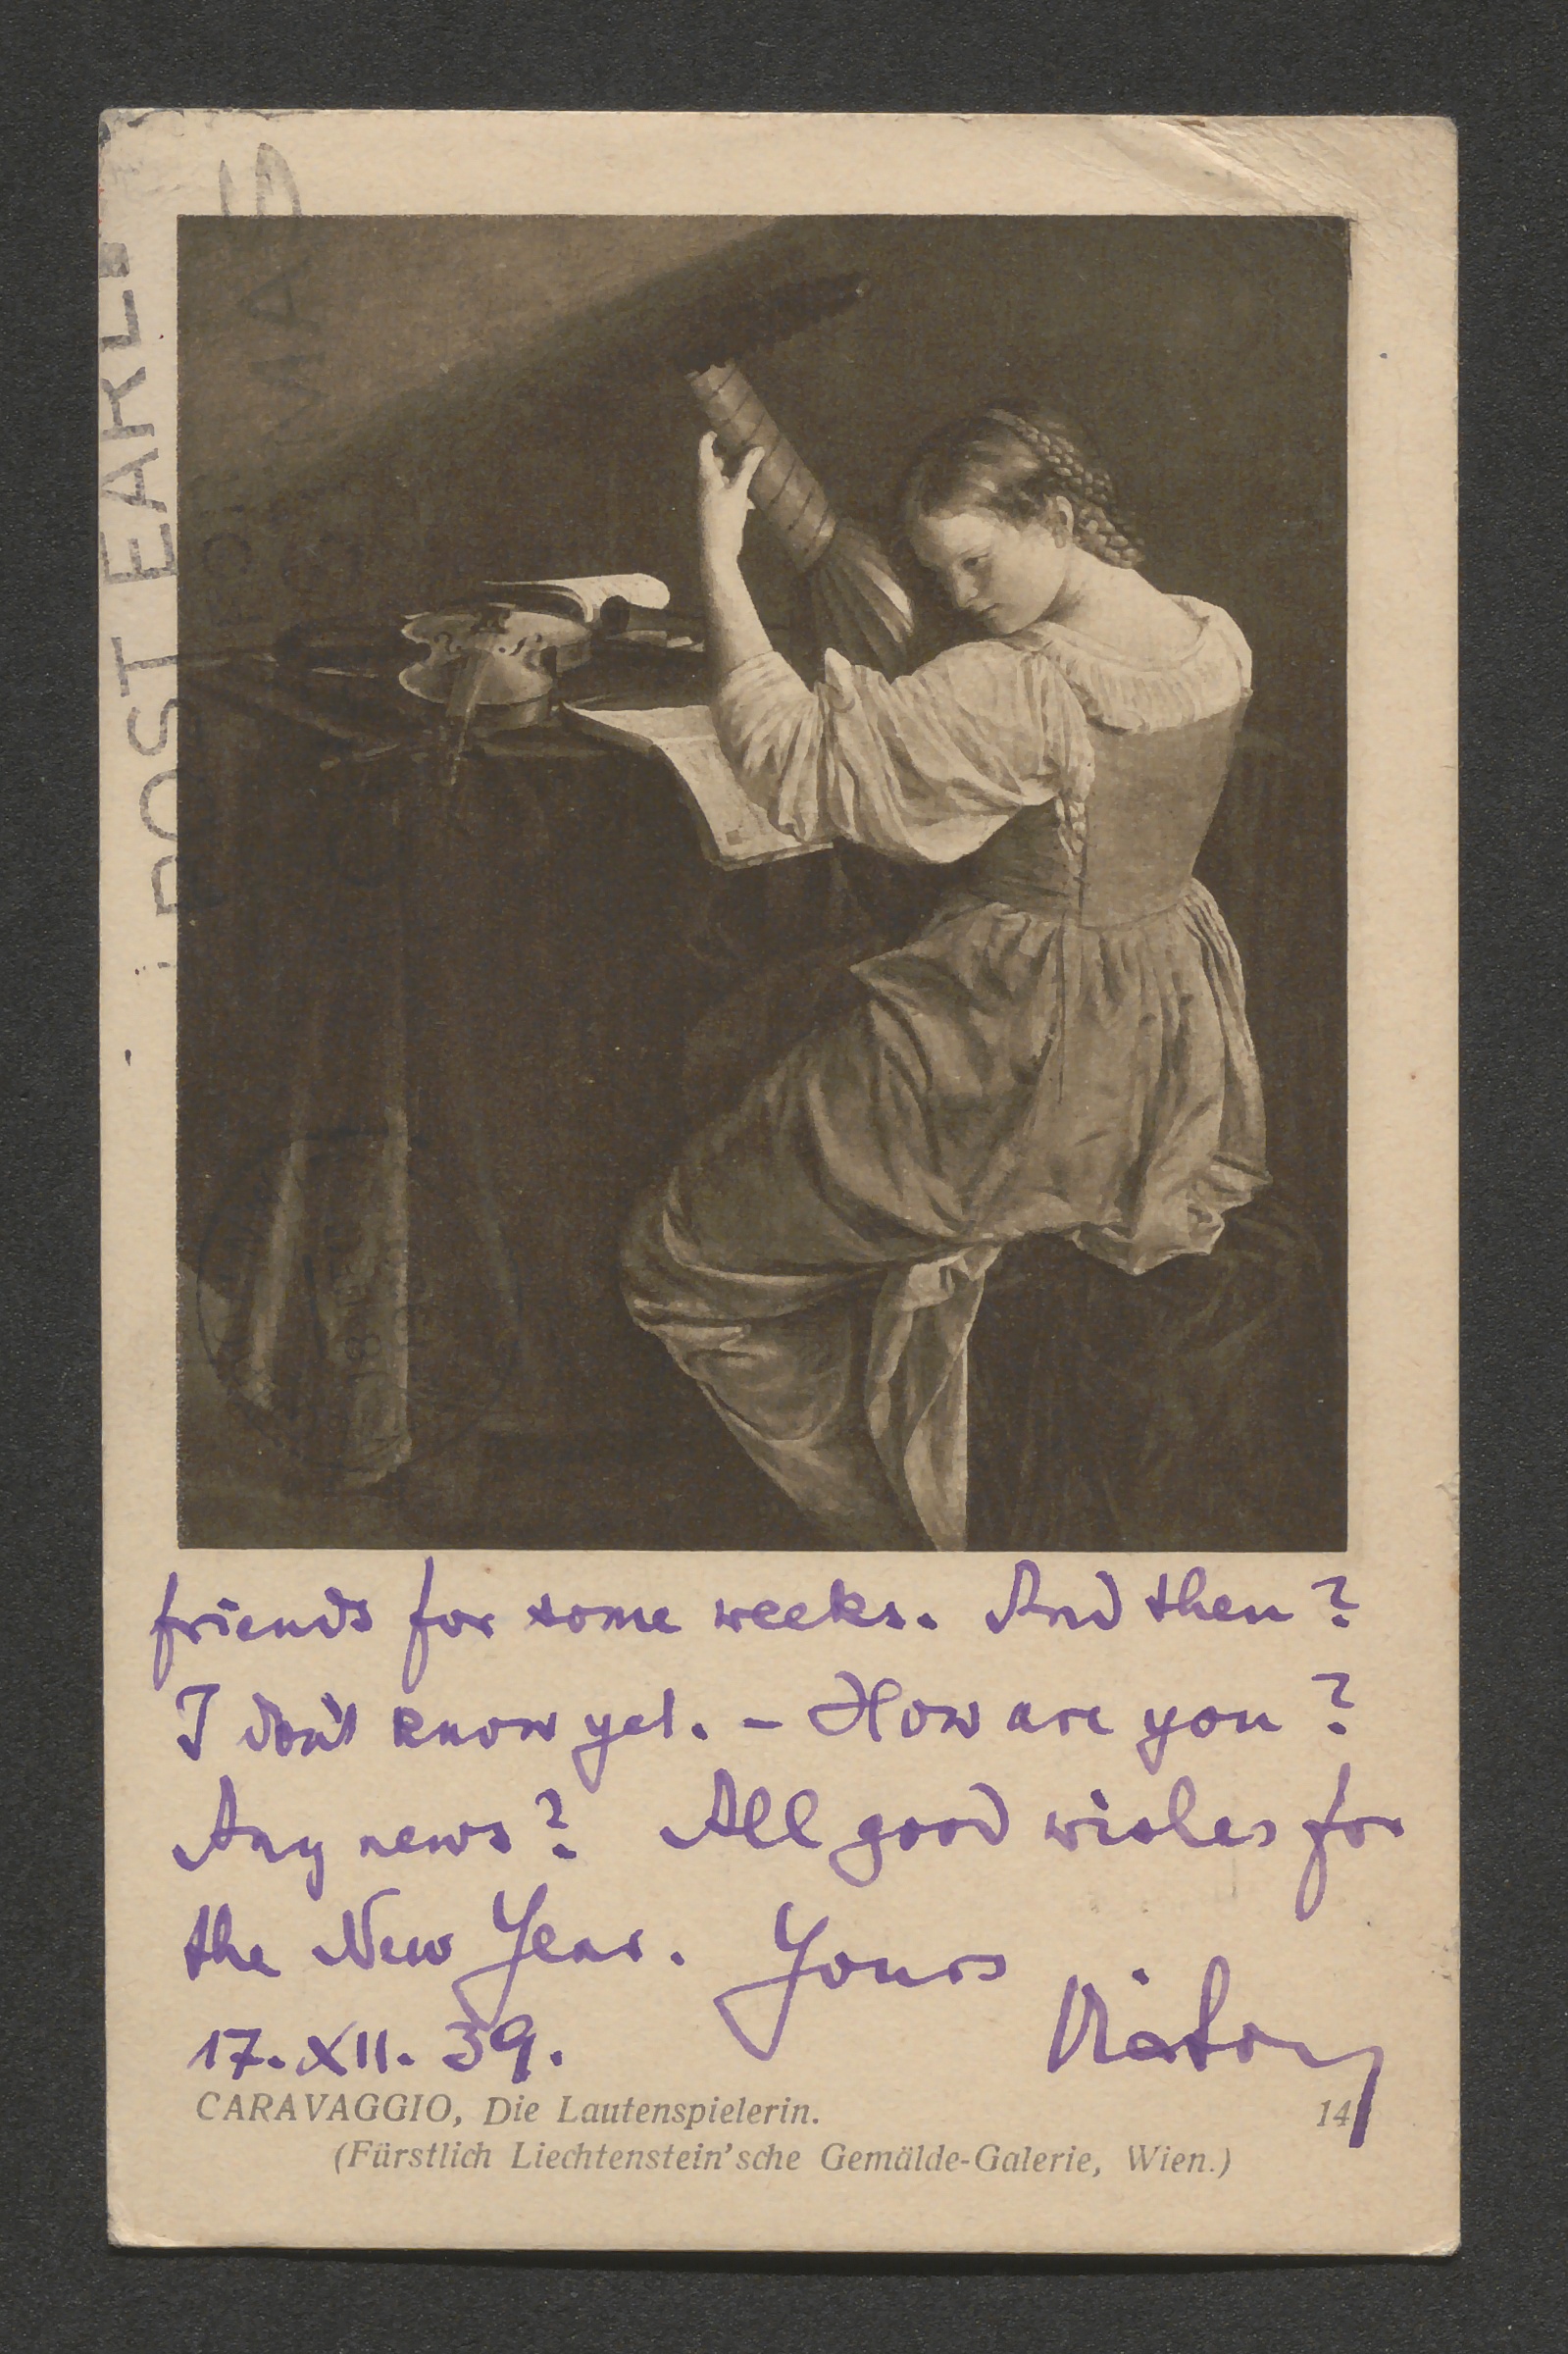 POST EARLY
FOR
friends for some weeks. And then?
I don't know yet. – How are you?
Any news? All good wishes for
the New Year. Yours
17. XII. 39.
CARAVAGGIO, Die Lautenspielerin. 14
(Fürstlich Liechtenstein'sche Gemälde-Galerie, Wien.)